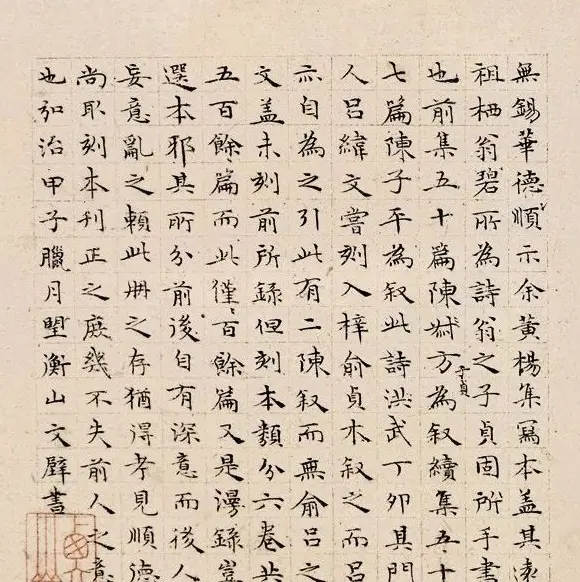 無錫華德順示余黃楊集寫本蓋其遠
祖栖翁碧所為詩翁之子貞固所手書
也前集五十篇陳方為叙續集五十
七篇陳子平為叙此詩洪武丁卯其門
人呂緯文嘗刻入梓俞貞木叙之而呂
亦自為之引此有二陳叙而無俞呂之
文蓋未刻前所錄但刻本類分六卷共
五百餘篇而此僅百餘篇又是漫錄豈
選本邪其所分前後自有深意而後人
妄意亂之賴此冊之存猶得考見順德
尚取刻本刊正之庶幾不失前人之意
也弘治甲子臘月朢衡山文壁書